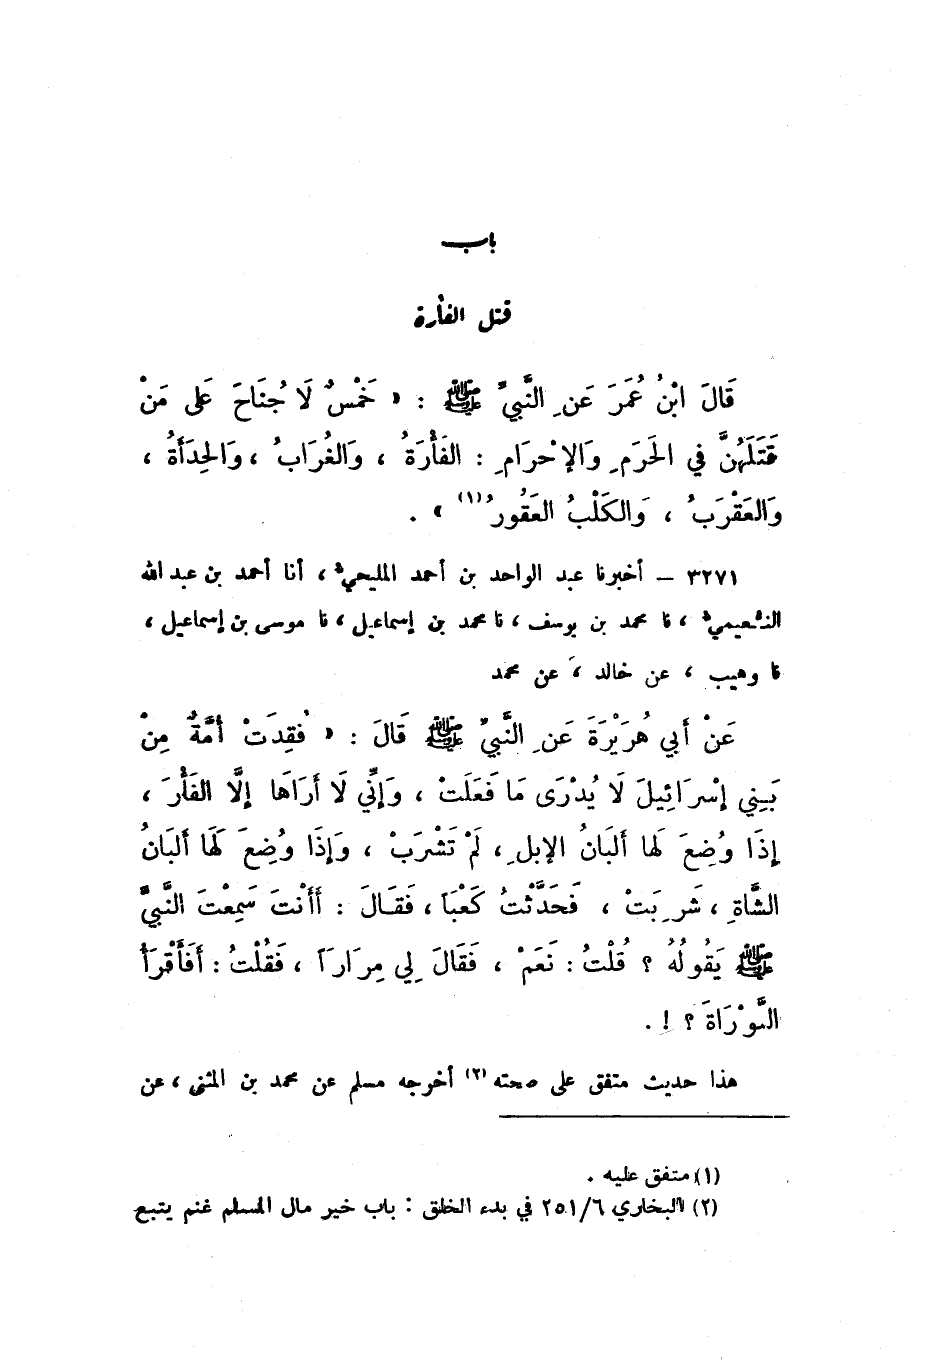 باب
قتل الفأرة
قَالَ ابْنُ عُمَرَ عَنِ النَّبِيِّ ﷺ : « خَمْسٌ لَا جُنَاحَ عَلى مَنْ
قَتَلَهُنَّ فِي الحَرَمِ وَالإحْرَامِ : الفَأْرَةُ ، وَالغُرَابُ ، وَالحِدَأَةُ ،
وَالعَقْرَبُ ، وَالكَلْبُ العَقُورُ(١) » .
٣٢٧١ – أخبرنا عبد الواحد بن أحمد المليحيُّ ، أنا أحمد بن عبد الله
النُّعيميُّ ، نا محمد بن يوسف ، نا محمد بن إسماعيل ، نا موسى بن إسماعيل ،
نا وهيب ، عن خالد ، عن محمد
عَنْ أَبي هُرَيْرَةَ عَنِ النَّبِيِّ ﷺ قَالَ : « فُقِدَتْ أُمَّةٌ مِنْ
بَنِي إسْرَائِيلَ لَا يُدْرَى مَا فَعَلَتْ ، وَإنِّي لَا أَرَاهَا إلَّا الفَأْرَ ،
إذَا وُضِعَ لَها أَلبَانُ الإبلِ ، لَمْ تَشْرَبْ ، وَإذَا وُضِعَ لَهَا أَلبَانُ
الشَّاةِ ، شَرِبَتْ ، فَحَدَّثْتُ كَعْبَاً ، فَقَـالَ : أَأَنْتَ سَمِعْتَ النَّبِيَّ
ﷺ يَقُولُهُ ؟ قُلْتُ : نَعَمْ ، فَقَالَ لِي مِرَارَاً ، فَقُلْتُ : أَفَأَقْرَأُ
التَّوْرَاةَ ؟ ! .
هذا حديث متفق على صحته (٢) أخرجه مسلم عن محمد بن المثنى ، عن
(١) متفق عليه .
(٢) البخاري ٢٥١/٦ في بدء الخلق : باب خير مال المسلم غنم يتبع